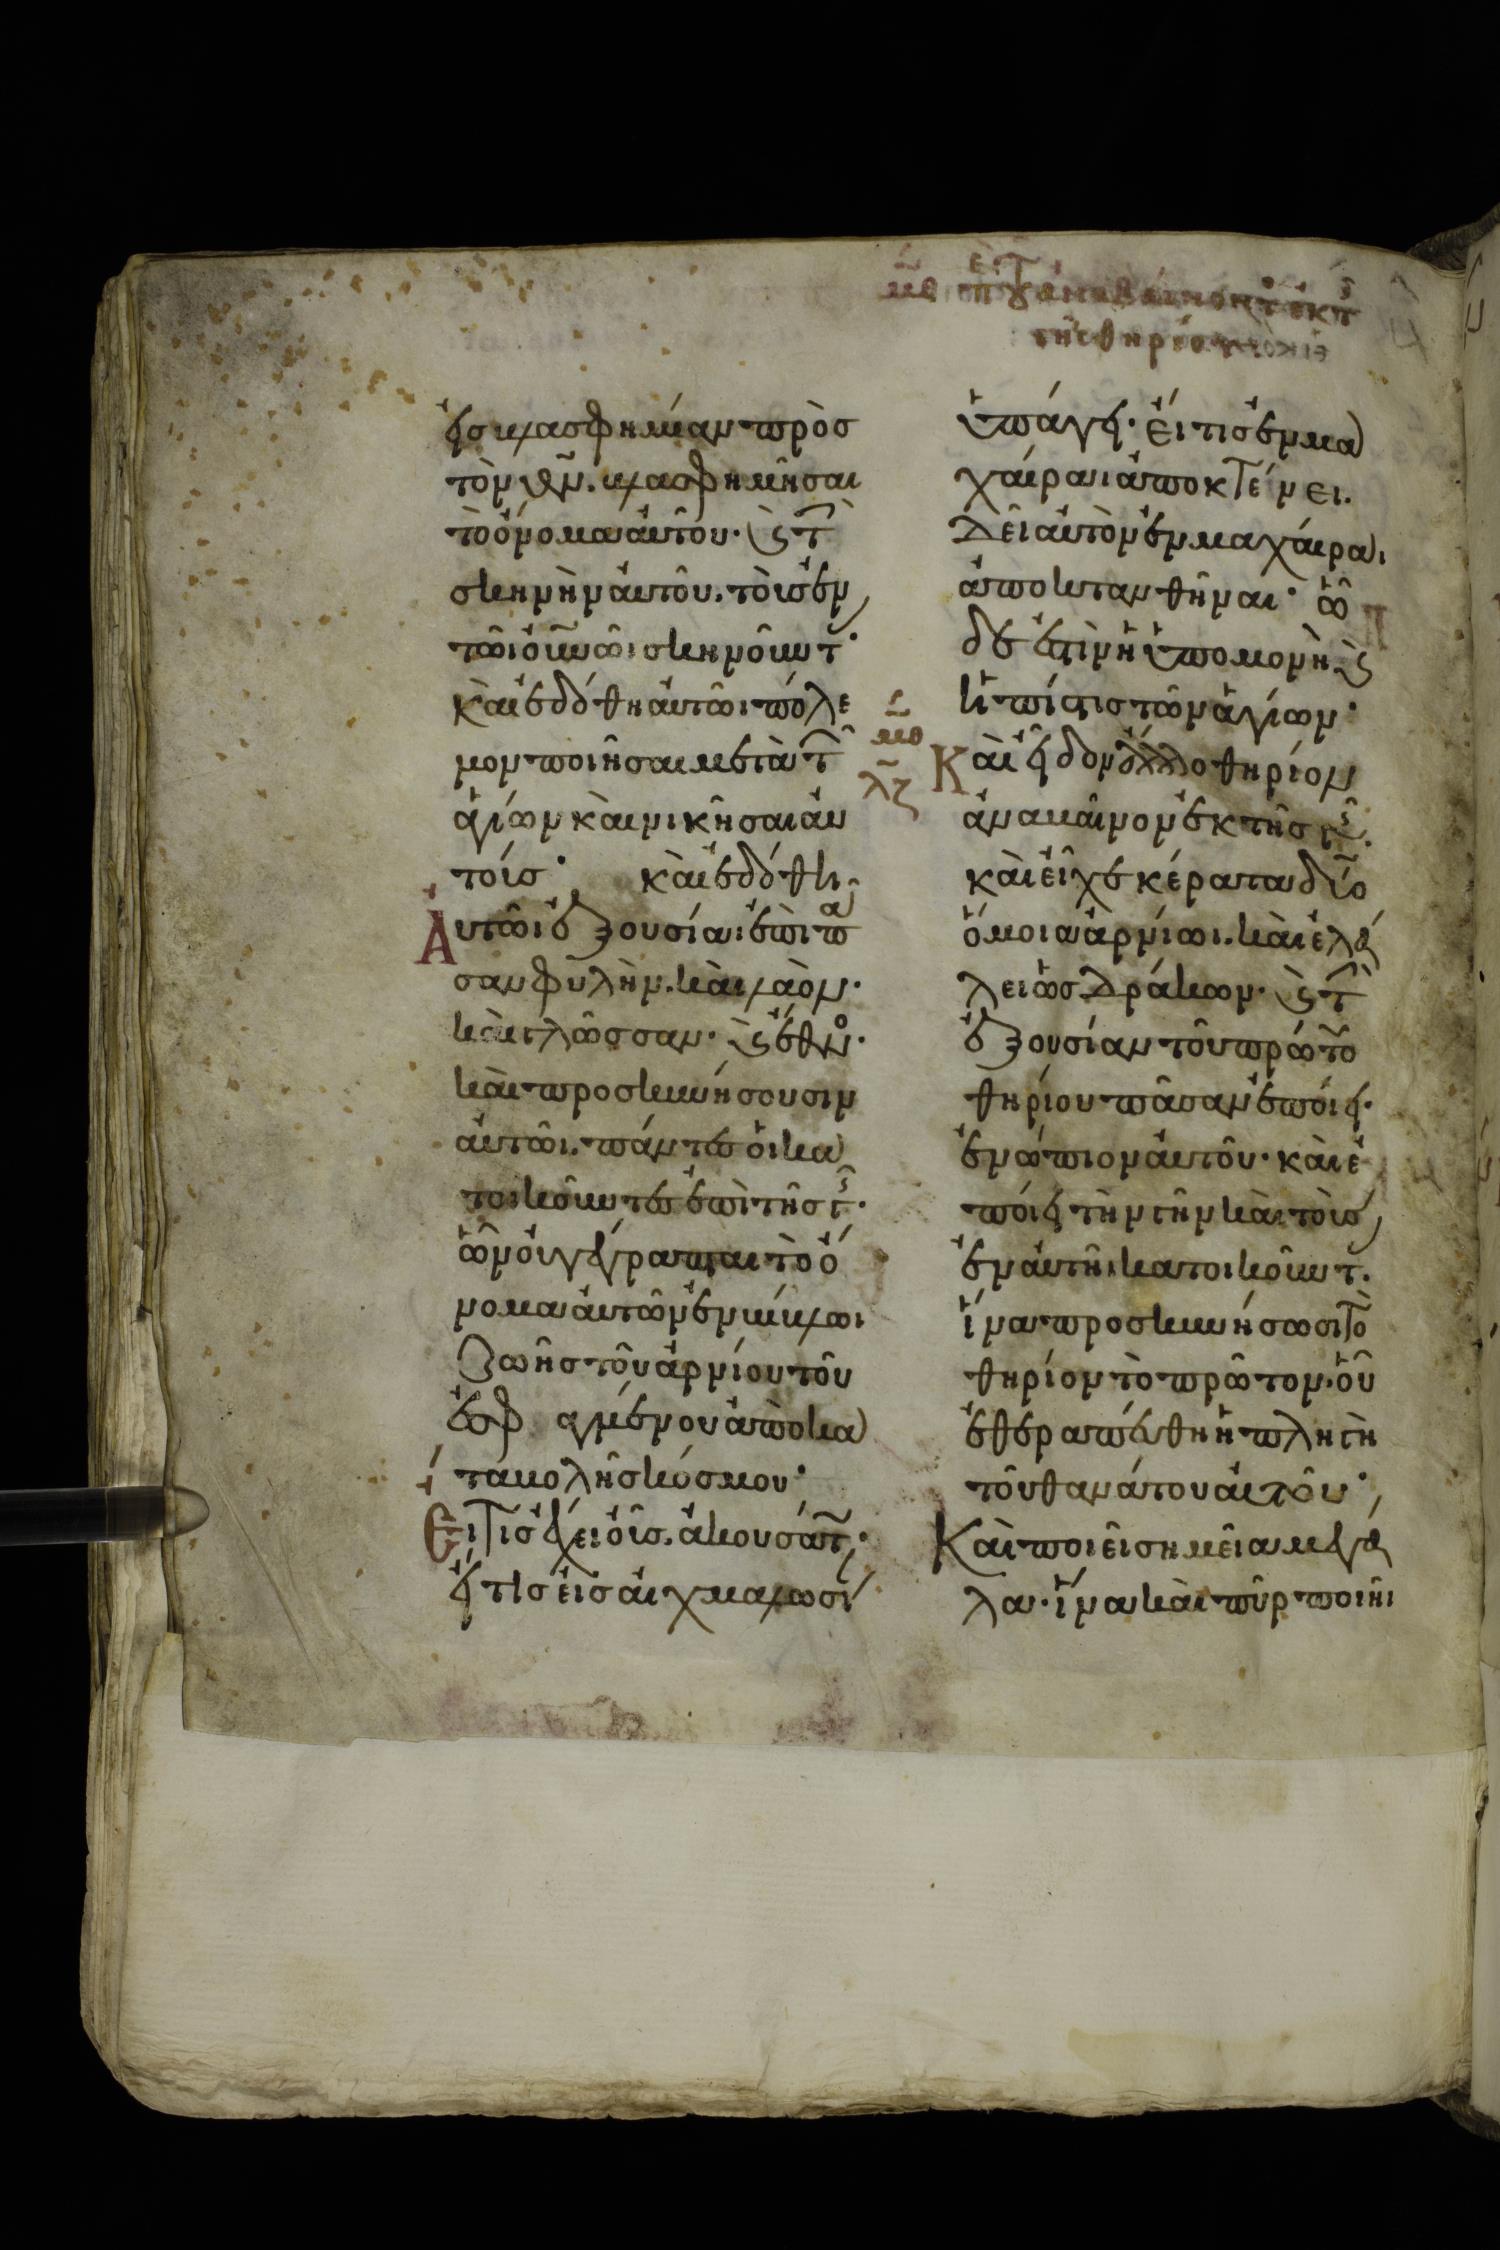 εἰς βλασφημίαν πρὸς
τὸν θν̅. βλασφημῆσαι
τὸ ὄνομα αὐτοῦ· ϗ τ̅
σκηνὴν αὐτοῦ. τοῖς ἐν
τῶι οὐνῶι σκηνοῦντ·
καὶ ἐδόθη αὐτῶι πόλε
μον ποιῆσαι μετὰ τ
ἁγίων καὶ νικῆσαι αὐ
τοίσ· καὶ ἐδόθη
Αὐτῶι ἐξουσία ἐπὶ πα
σαν φυλὴν. καὶ λαὸν·
καὶ γλῶσσαν· ϗ ἔθνο·
καὶ προσκυνήσουσιν
αὐτῶι. πάντες οἱ κα
τοικοῦντες ἐπὶ τῆς γῆς·
ὧν οὐ γέγραπται τὸ ὄ
νομα αὐτῶν ἐν βίβλωι
ζωῆς τοῦ ἀρνίου τοῦ
ἐσφαγμένου ἀπὸ κα
ταβολῆς κόσμου·
Εἴ τις ἔχει οὖς. ἀκουσάτ·
εἴ τις εἰς αἰχμαλωσί
ὑπάγει· εἴ τις ἐν μα
χαίραι ἀποκτείνει.
Δεῖ αὐτὸν ἐν μαχαίραι
ἀποκτανθῆναι· ὧ
δέ ἐστιν ἡ ὑπομονὴ ϗ
ἡ πίστις τῶν ἁγίων·
με̅
λζ̅
Καὶ εἶδον ἄλλο θηρίον
ἀναβαῖνον ἐκ τῆς γῆς·
καὶ εἶχε κέρατα δύο
ὅμοια ἀρνίωι. καὶ ἐλά
λει ὡς δράκων· ϗ τ
ἐξουσίαν τοῦ πρώτο
θηρίου πᾶσαν ἐποίει·
ἐνώπιον αὐτοῦ· καὶ ἐ
ποίει τὴν γῆν καὶ τοὶς
ἐν αὐτῆι κατοικοῦντ.
ἵνα προσκυνήσωσι το
θηρίον τὸ πρῶτον· οὗ
ἐθεραπεύθη ἡ πληγὴ
τοῦ θανάτου αὐτοῦ·
Καὶ ποιεῖ σημεῖα μεγά
λα· ἵνα καὶ πῦρ ποιῆι